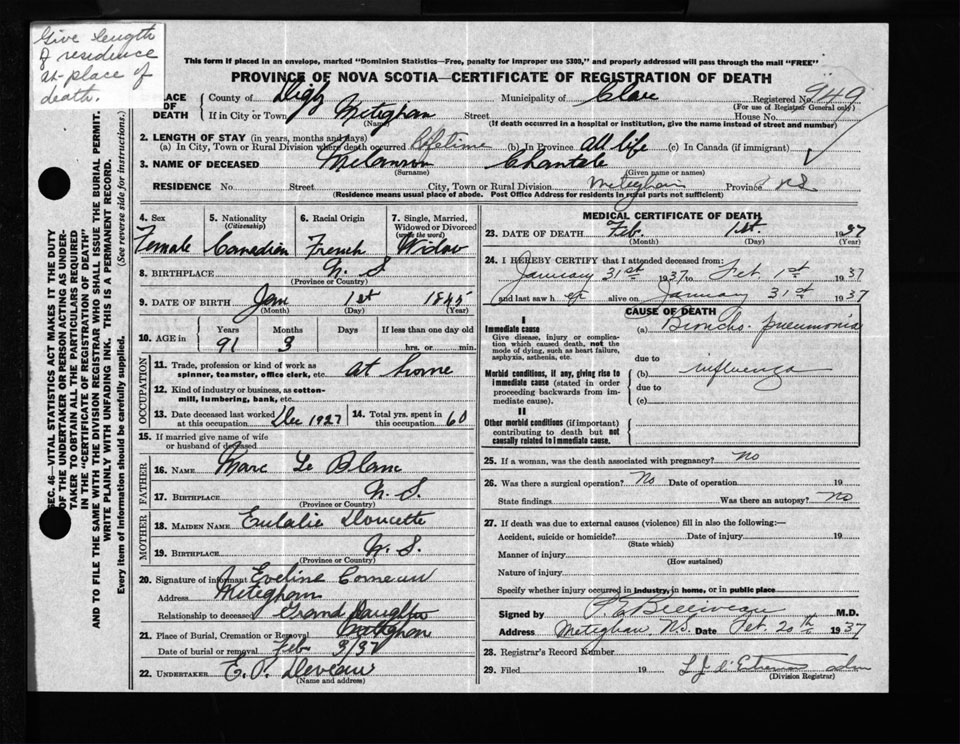 Give length
of residence
at place of
death.
This form if placed in an envelope, marked "Dominion Statistics—Free, penalty for improper use $300," and properly addressed will pass through the mail "FREE"
PROVINCE OF NOVA SCOTIA—CERTIFICATE OF REGISTRATION OF DEATH
PLACE OF DEATH County of Digby Municipality of Clare Registered No. 949
(For use of Registrar General only)
If in City or Town Meteghan Street House No.
(Name) (If death occurred in a hospital or institution, give the name instead of street and number)
2. LENGTH OF STAY (in years, months and days)
(a) In City, Town or Rural Division where death occurred Lifetime (b) In Province all life (c) In Canada (if immigrant)
3. NAME OF DECEASED Melanson Chantale
(Surname) (Given name or names)
RESIDENCE No. Street City, Town or Rural Division Meteghan Province N S
(Residence means usual place of abode. Post Office Address for residents in rural parts not sufficient)
4. Sex 5. Nationality 6. Racial Origin 7. Single, Married,
(Citizenship) Widowed or Divorced
(write the word)
Female Canadian French Widow
8. BIRTHPLACE N. S
(Province or Country)
9. DATE OF BIRTH Jan 1st 1845
(Month) (Day) (Year)
10. AGE in Years Months Days If less than one day old
91 3 hrs. or min.
OCCUPATION
11. Trade, profession or kind of work as
spinner, teamster, office clerk, etc. at home
12. Kind of industry or business, as cotton-
mill, lumbering, bank, etc.
13. Date deceased last worked Dec 1927 14. Total yrs. spent in 60
at this occupation at this occupation
15. If married give name of wife
or husband of deceased
FATHER
16. NAME Marc Le Blanc
17. BIRTHPLACE N. S.
(Province or Country)
MOTHER
18. MAIDEN NAME Eulalie Doucette
19. BIRTHPLACE N. S.
(Province or Country)
20. Signature of informant Eveline Comeau
Address Meteghan
Relationship to deceased Grand Daughter
21. Place of Burial, Cremation or Removal Meteghan
Date of burial or removal Feb 3/37
22. UNDERTAKER E. P. Deveau
(Name and address)
MEDICAL CERTIFICATE OF DEATH
23. DATE OF DEATH Feb. 1st 1937
(Month) (Day) (Year)
24. I HEREBY CERTIFY that I attended deceased from:
January 31st 1937 to Feb. 1st 1937
and last saw h er alive on January 31st 1937
CAUSE OF DEATH
I
Immediate cause (a) Broncho-pneumonia
Give disease, injury or complica-
tion which caused death, not the
mode of dying, such as heart failure,
asphyxia, asthenia, etc. due to
Morbid conditions, if any, giving rise to (b) influenza
immediate cause (stated in order due to
proceeding backwards from im-
mediate cause). (c)
II
Other morbid conditions (if important)
contributing to death but not
causally related to immediate cause.
25. If a woman, was the death associated with pregnancy? no
26. Was there a surgical operation? No Date of operation 19
State findings Was there an autopsy? no
27. If death was due to external causes (violence) fill in also the following:—
Accident, suicide or homicide? Date of injury 19
(State which)
Manner of injury
(How sustained)
Nature of injury
Specify whether injury occurred in industry, in home, or in public place
Signed by P E Belliveau M.D.
Address Meteghan, N.S. Date Feb. 20th 1937
28. Registrar's Record Number
29. Filed 19
(Division Registrar)
SEC. 46—VITAL STATISTICS ACT MAKES IT THE DUTY
OF THE UNDERTAKER OR PERSON ACTING AS UNDER-
TAKER TO OBTAIN ALL THE PARTICULARS REQUIRED
IN THE "CERTIFICATE OF REGISTRATION OF DEATH"
AND TO FILE THE SAME WITH THE DIVISION REGISTRAR WHO SHALL ISSUE THE BURIAL PERMIT.
WRITE PLAINLY WITH UNFADING INK. THIS IS A PERMANENT RECORD.
Every item of information should be carefully supplied. (See reverse side for instructions.)